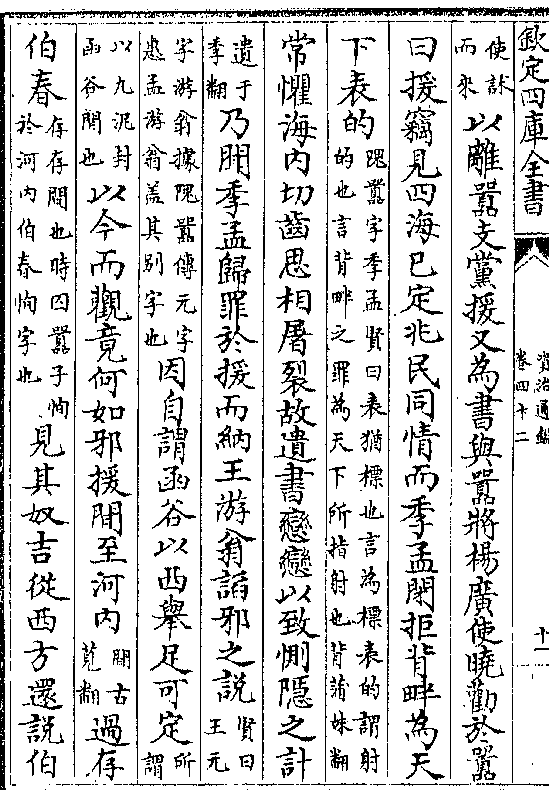 欽定四庫全書
資治通鑑
卷四十二
十一
使訹而來以離囂支黨援又為書與囂將楊廣使曉勸於囂
曰援竊見四海已定兆民同情而季孟閉拒背畔為天
下表的隗囂字季孟賢曰表猶標也言為標表的謂射的也言背畔之罪為天下所指射也背蒲妹翻
常懼海内切齒思相屠裂故遺書戀戀以致惻隱之計
遺于季翻乃聞季孟歸罪於援而納王游翁諂邪之說賢曰王元
字游翁據隗囂傳元字惠孟游翁盖其别字也因自謂函谷以西舉足可定所謂
以九泥封函谷關也以今而觀竟何如邪援間至河内間古莧翻過存
伯春存存問也時囚囂子恂於河内伯春恂字也見其奴吉從西方還說伯